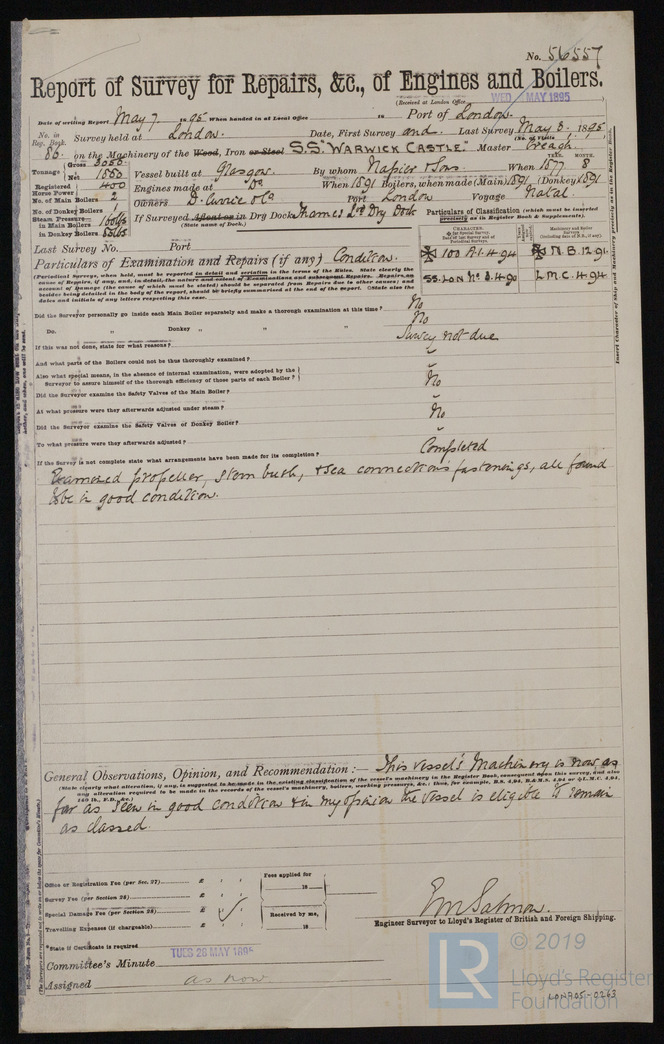 No. 56557
Report of Survey for Repairs, &c., of Engines and Boilers.
(Received at London Office WED MAY 1895
Date of writing Report May 7 1895 When handed in at Local Office 18 Port of London.
No. in Reg. Book. Survey held at London. Date, First Survey and Last Survey May 3, 1895
(No. of Visits 1)
86. on the Machinery of the Wood, Iron or Steel S.S. "WARWICK CASTLE" Master Creagh.
Tonnage Gross 3050 Net 1850 Vessel built at Glasgow. By whom Napier & Sons. When YEAR. 1877 MONTH. 8
Registered Horse Power 400 Engines made at Do When 1891 Boilers, when made (Main) 1891 (Donkey) 1891
No. of Main Boilers 2 Owners D. Currie & Co Port London Voyage Natal.
No. of Donkey Boilers 1
Steam Pressure in Main Boilers 160 lbs If Surveyed Afloat or in Dry Dock Thames Dry Dock
(State name of Dock.)
in Donkey Boilers
Particulars of Classification (which must be inserted precisely as in Register Book & Supplements).
Last Survey No. Port
100 A.1. 4.94 N.B. 12.91
SS. LON No. 3. 4.90 L.M.C. 4.94
Particulars of Examination and Repairs (if any) Condition.
(Periodical Surveys, when held, must be reported in detail and seriatim in the terms of the Rules. State clearly the
cause of Repairs, if any, and, in detail, the nature and extent of Examinations and subsequent Repairs. Repairs on
account of Damage (the cause of which must be stated) should be separated from Repairs due to other causes; and
besides being detailed in the body of the report, should be briefly summarised at the end of the report. State also the
dates and initials of any letters respecting this case.
Did the Surveyor personally go inside each Main Boiler separately and make a thorough examination at this time? No
Do. " Donkey " " " No
If this was not done, state for what reasons? Survey not due
And what parts of the Boilers could not be thoroughly examined? "
Also what special means, in the absence of internal examination, were adopted by the
Surveyor to assure himself of the thorough efficiency of those parts of each Boiler? "
Did the Surveyor examine the Safety Valves of the Main Boiler? No
At what pressure were they afterwards adjusted under steam? "
Did the Surveyor examine the Safety Valves of Donkey Boiler? No
To what pressure were they afterwards adjusted? "
If the Survey is not complete state what arrangements have been made for its completion? Completed
Examined propeller, stern bush, & sea connections fastenings, all found
to be in good condition.
General Observations, Opinion, and Recommendation:— This vessel's Machinery is now as
(State clearly what alteration, if any, is suggested to be made in the existing classification of the vessel's machinery in the Register Book, consequent upon this survey, and also
any alteration required to be made in the records of the vessel's machinery, boilers, working pressures, &c.; thus, for example, B.S. 4,94, B.&M.S. 4,94 or L.M.C. 4,94,
140 lb., F.D., &c.)
far as seen in good condition & in my opinion the vessel is eligible to remain
as classed.
Office or Registration Fee (per Sec. 27) £ : : Fees applied for
Survey Fee (per Section 28) £ : : 18
Special Damage Fee (per Section 28) £ : : Received by me,
Travelling Expenses (if chargeable) £ : : 18
E M Salmon.
Engineer Surveyor to Lloyd's Register of British and Foreign Shipping.
State if Certificate is required
Committee's Minute TUES 28 MAY 1895
Assigned as now
© 2019
LR Lloyd's Register
Foundation
LON805-0263